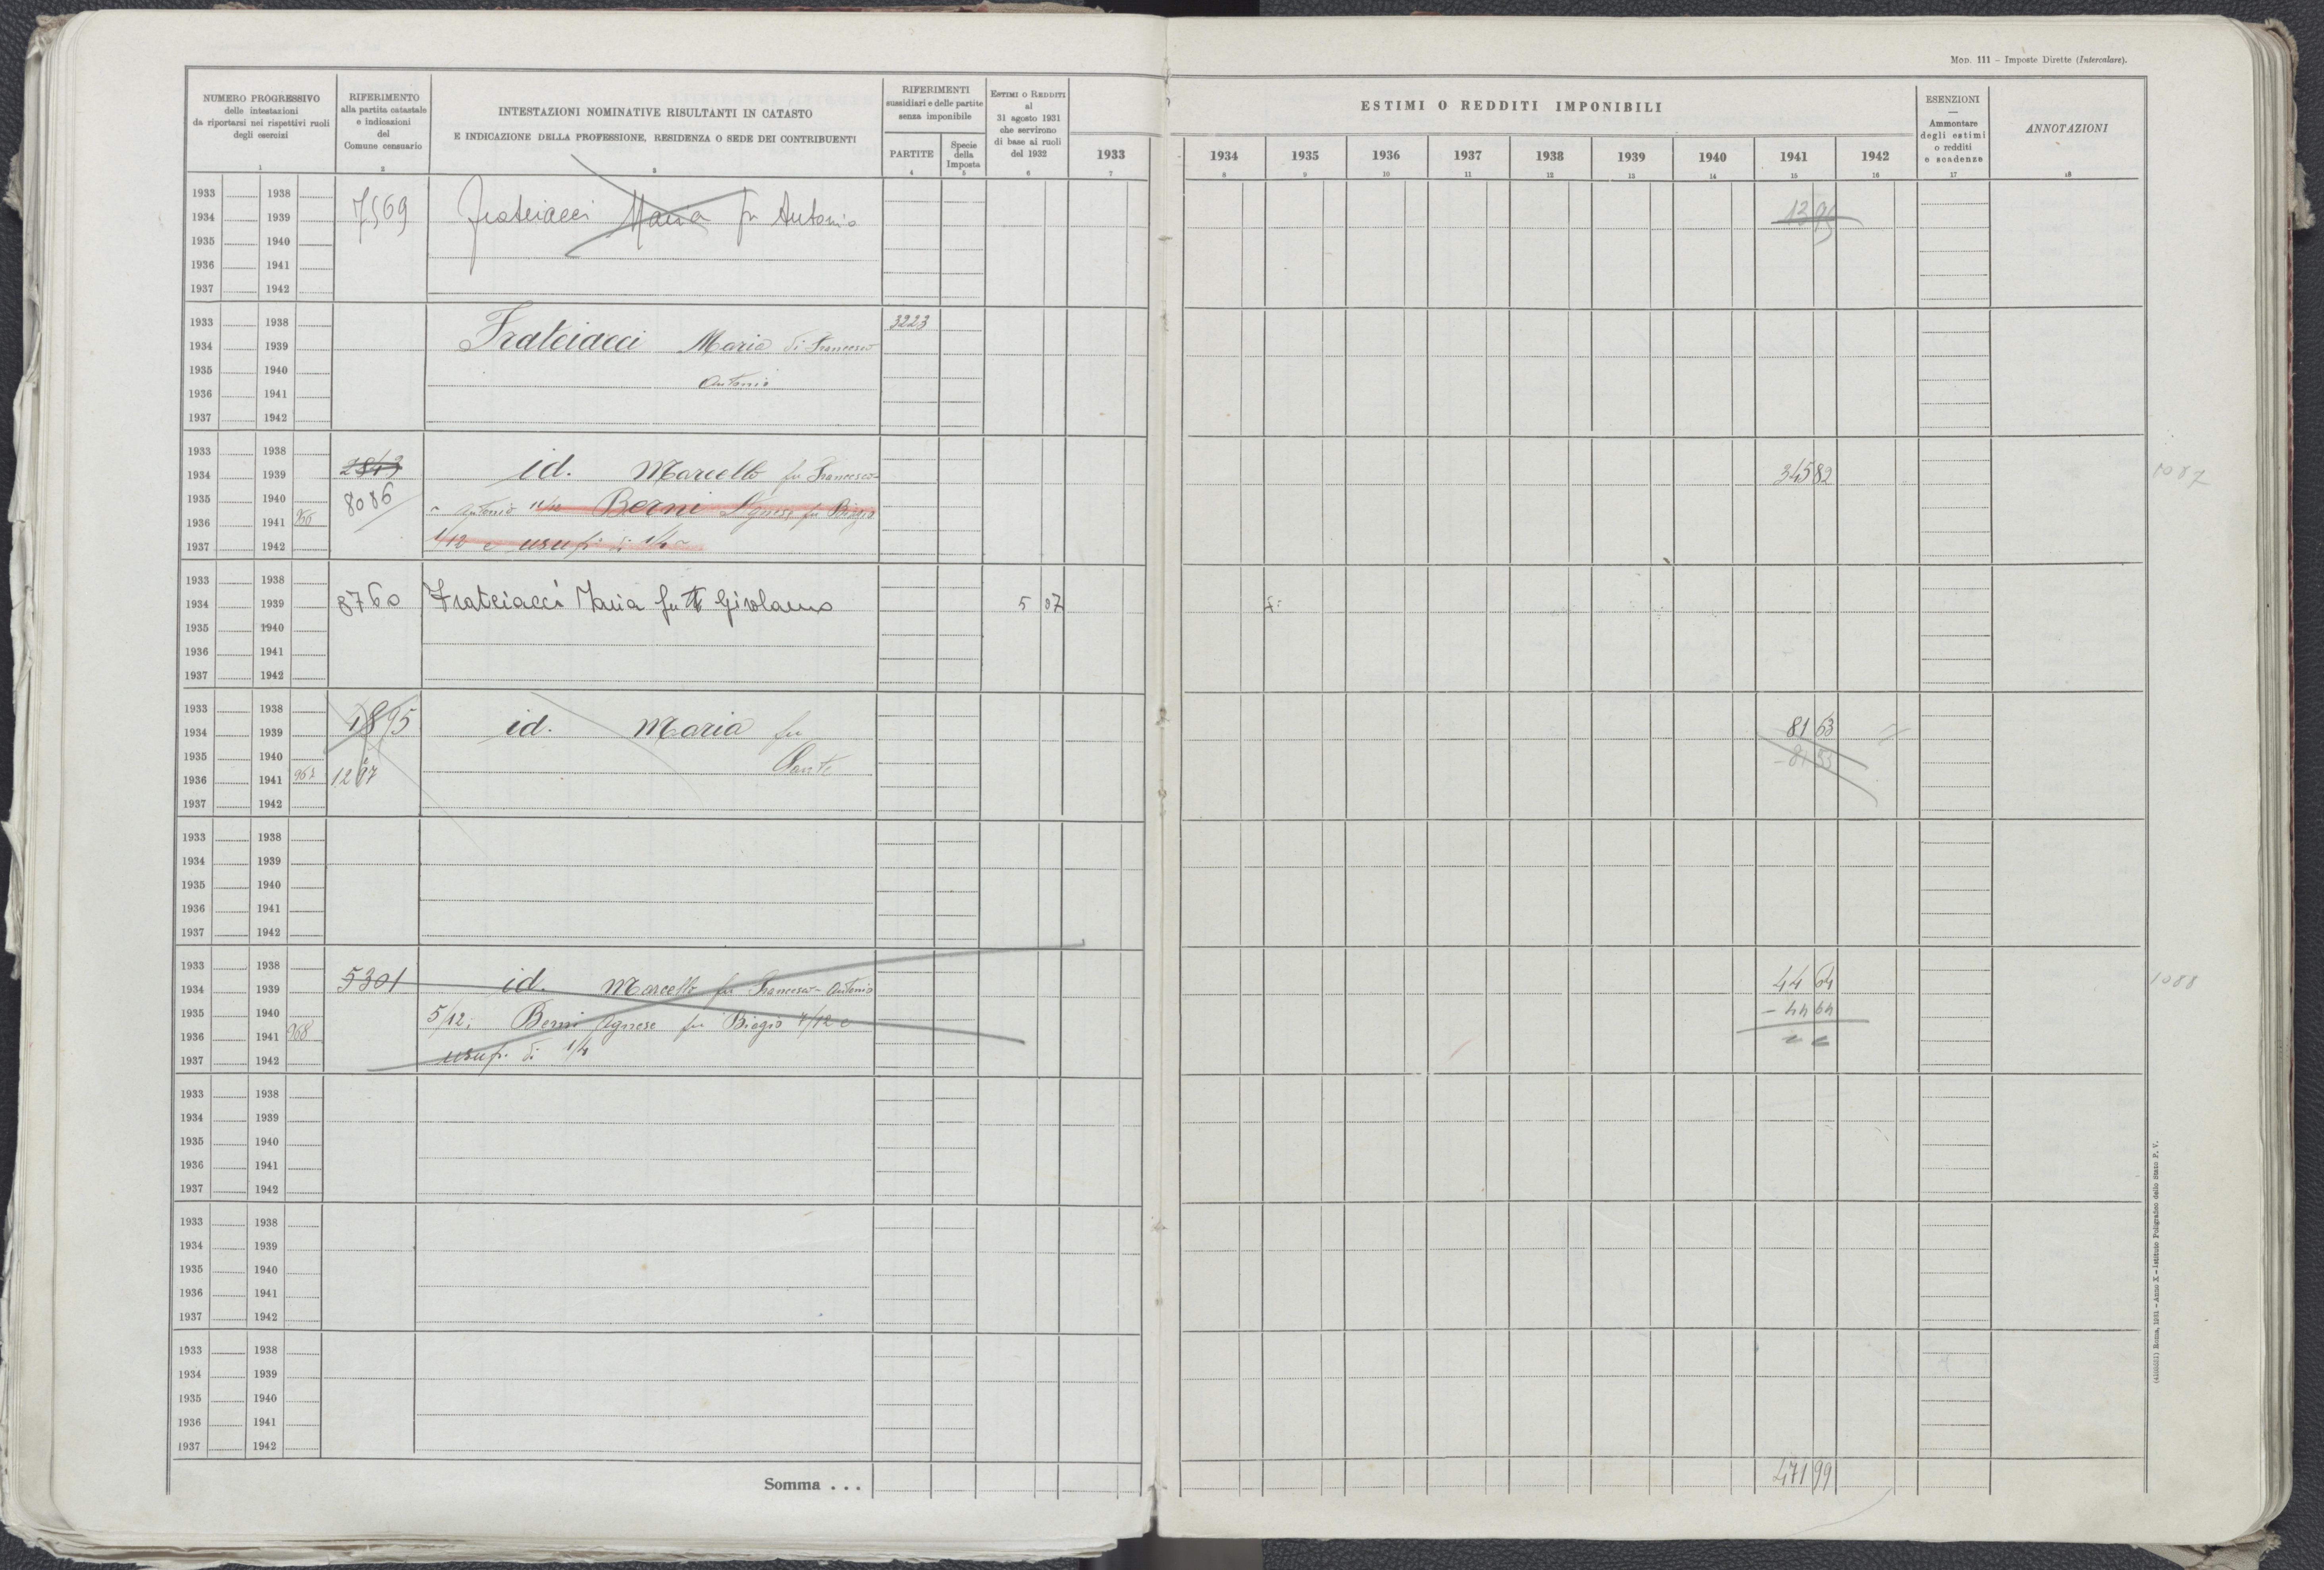 Mod. 111 - Imposte Dirette (Intercalare).
NUMERO PROGRESSIVO
delle intestazioni
da riportarsi nei rispettivi ruoli
degli esercizi
1
RIFERIMENTO
alla partita catastale
e indicazioni
del
Comune censuario
2
INTESTAZIONI NOMINATIVE RISULTANTI IN CATASTO
E INDICAZIONE DELLA PROFESSIONE, RESIDENZA O SEDE DEI CONTRIBUENTI
3
RIFERIMENTI
sussidiari e delle partite
senza imponibile
PARTITE
4
Specie
della
Imposta
5
Estimi o Redditi
al
31 agosto 1931
che servirono
di base ai ruoli
del 1932
6
ESTIMI O REDDITI IMPONIBILI
1933 1934 1935 1936 1937 1938 1939 1940 1941 1942
7 8 9 10 11 12 13 14 15 16
ESENZIONI
—
Ammontare
degli estimi
o redditi
e scadenze
17
ANNOTAZIONI
18
1933 1938
1934 1939 7569 Frateiacci Maria fu Antonio 13 95
1935 1940
1936 1941
1937 1942
1933 1938 3223
1934 1939 Frateiacci Maria di Francesco
1935 1940 Antonio
1936 1941
1937 1942
1933 1938
1934 1939 2843 id. Marcello fu Francesco- 345 82 1087
1935 1940 8086 Antonio 11/12 Berni Agnese fu Biagio
1936 1941 966
1937 1942 1/12 e usufr. di 1/4
1933 1938
1934 1939 8760 Frateiacci Maria fu Girolamo 5 07
1935 1940
1936 1941
1937 1942
1933 1938
1934 1939 1895 id. Maria fu 81 63
1935 1940 Sante
1936 1941 967 1297
1937 1942
1933 1938
1934 1939
1935 1940
1936 1941
1937 1942
1933 1938
1934 1939 5301 id. Marcello fu Francesco-Antonio 44 64 1088
1935 1940 5/12; Berni Agnese fu Biagio 7/12 e - 44 64
1936 1941 968
1937 1942 usufr. di 1/4
1933 1938
1934 1939
1935 1940
1936 1941
1937 1942
1933 1938
1934 1939
1935 1940
1936 1941
1937 1942
1933 1938
1934 1939
1935 1940
1936 1941
1937 1942
Somma . . . 471 99
Roma, 1931 - Anno X - Istituto Poligrafico dello Stato P. V.